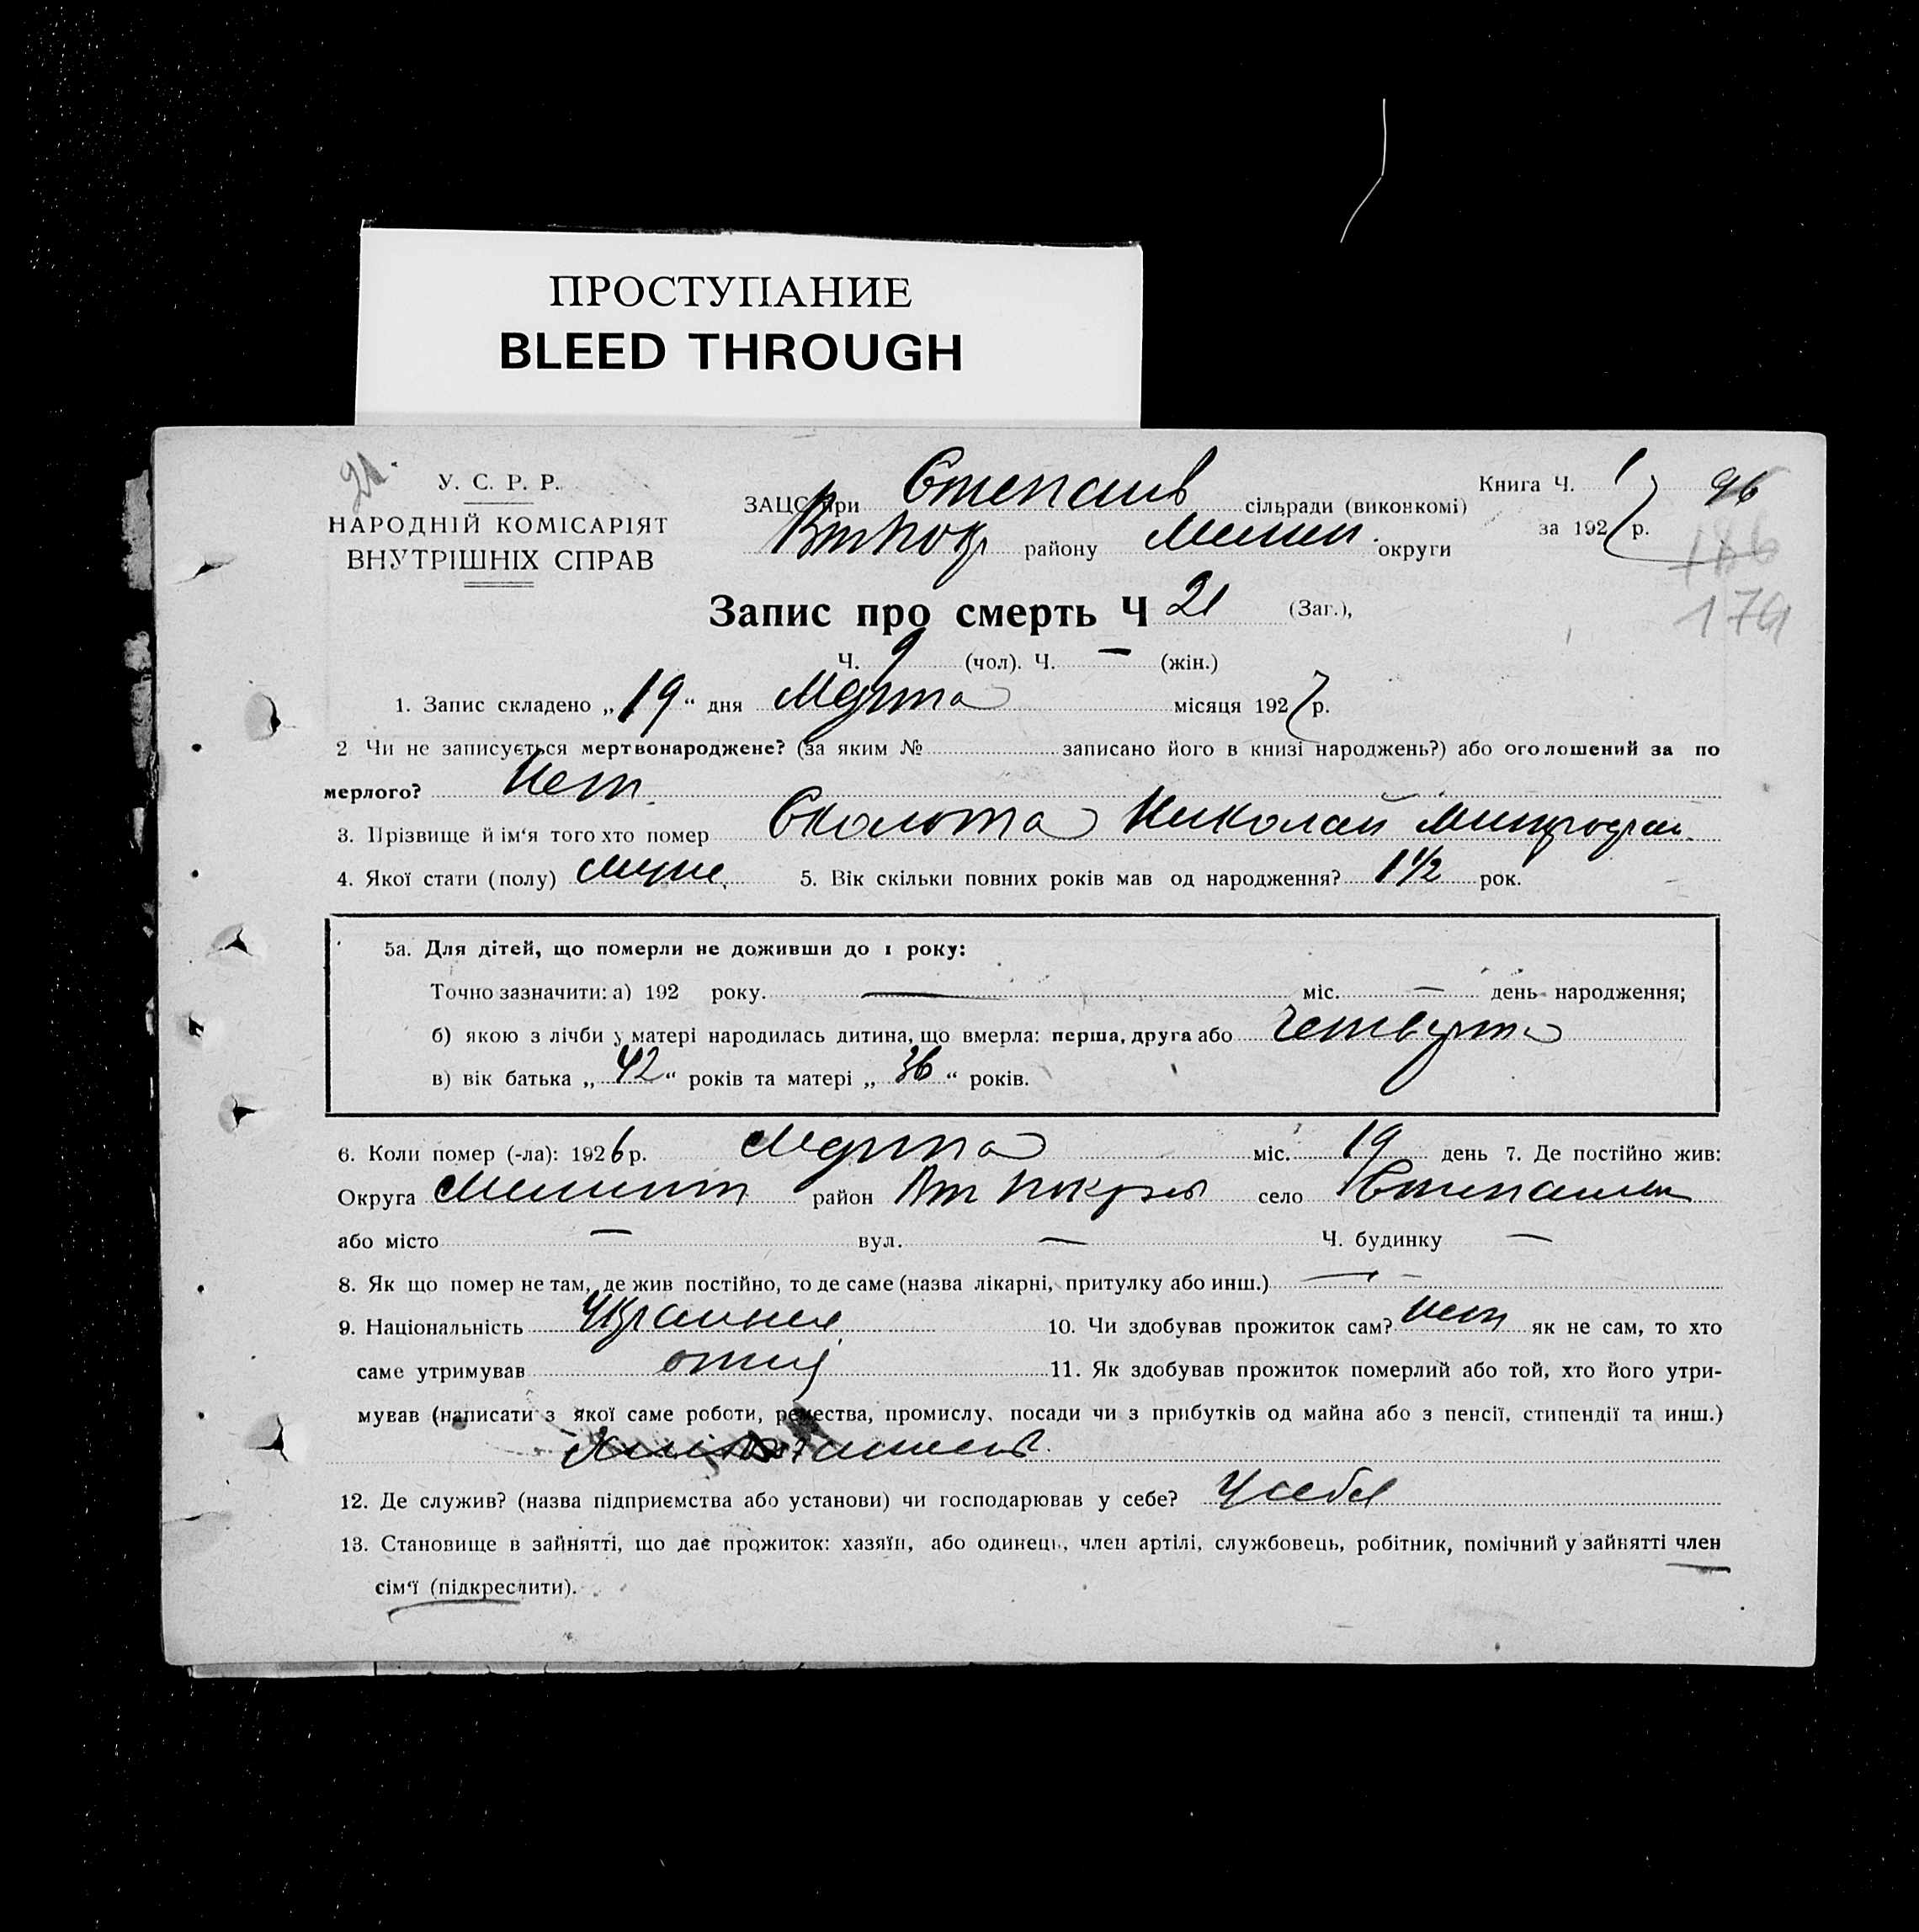 ПРОСТУПАНИЕ
BLEED THROUGH
21.
У. С. Р. Р.
НАРОДНІЙ КОМІСАРІЯТ
ВНУТРІШНІХ СПРАВ
ЗАЦС при Степанів сільради (виконкомі)
району округи
Книга Ч. 1 96
за 1927 р.
186
179
Запис про смерть Ч 21 (Заг.),
Ч. 9 (чол). Ч. — (жін.)
1. Запис складено „ 19 “ дня Марта місяця 1927 р.
2 Чи не записується мертвонароджене? (за яким № записано його в книзі народжень?) або оголошений за по
мерлого? Нет.
3. Прізвище й ім‘я того хто помер Николай
4. Якої стати (полу) 5. Вік скільки повних років мав од народження? 1 1/2 рок.
5а. Для дітей, що померли не доживши до 1 року:
Точно зазначити: а) 192 року. — міс. — день народження;
б) якою з лічби у матері народилась дитина, що вмерла: перша, друга або четверта
в) вік батька „ 42 “ років та матері „ 36 “ років.
6. Коли помер (-ла): 1926 р. Марта міс. 19 день 7. Де постійно жив:
Округа район село
або місто — вул. — Ч. будинку —
8. Як що помер не там, де жив постійно, то де саме (назва лікарні, притулку або инш.) —
9. Національність 10. Чи здобував прожиток сам? нет як не сам, то хто
саме утримував отец 11. Як здобував прожиток померлий або той, хто його утри-
мував (написати з якої саме роботи, ремества, промислу, посади чи з прибутків од майна або з пенсії, стипендії та инш.)
12. Де служив? (назва підприємства або установи) чи господарював у себе? У себя
13. Становище в зайнятті, що дає прожиток: хазяїн, або одинець, член артілі, службовець, робітник, помічний у зайнятті член
сім‘ї (підкреслити).